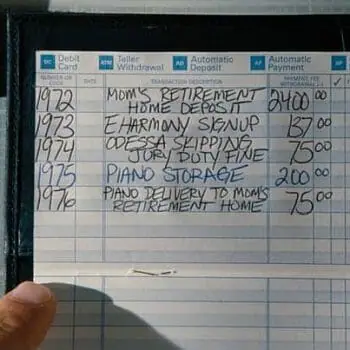 DC Debit Card
ATM Teller Withdrawal
AD Automatic Deposit
AP Automatic Payment
NUMBER OR CODE DATE TRANSACTION DESCRIPTION PAYMENT, FEE WITHDRAWAL (-) ✓
1972 MOM'S RETIREMENT HOME DEPOSIT 2400 00
1973 EHARMONY SIGNUP 137 00
1974 ODESSA SKIPPING JURY DUTY FINE 75 00
1975 PIANO STORAGE 200 00
1976 PIANO DELIVERY TO MOM'S RETIREMENT HOME 75 00